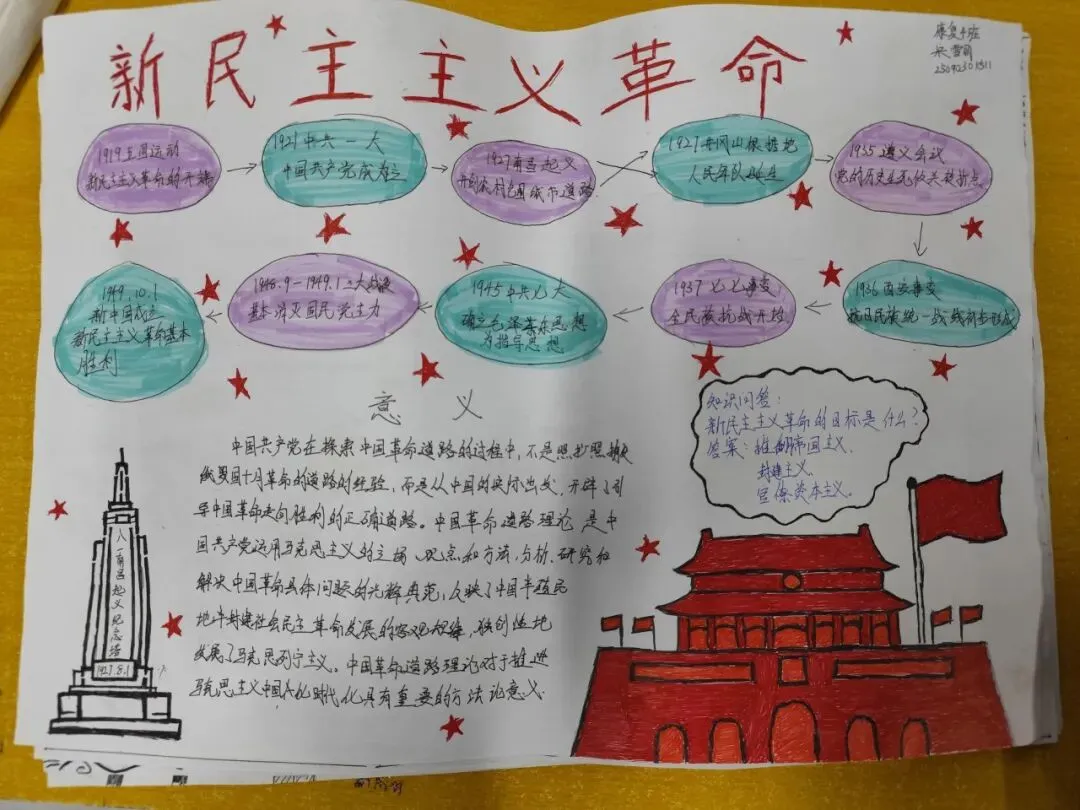 新民主主义革命
康复4班
1919五四运动
新民主主义革命的开端
1921中共一大
中国共产党成立
1927南昌起义
开创农村包围城市道路
1927井冈山根据地
人民军队诞生
1935遵义会议
党的历史生死攸关转折点
1936西安事变
抗日民族统一战线初步形成
1937七七事变
全民族抗战开始
1945中共七大
确立毛泽东思想
为指导思想
1948.9-1949.1三大战役
基本消灭国民党主力
1949.10.1
新中国成立
新民主主义革命基本
胜利
意义
中国共产党在探索中国革命道路的过程中,不是照抄照搬
俄国十月革命的道路的经验,而是从中国的实际出发,开辟了引
导中国革命走向胜利的正确道路。中国革命道路理论是中
国共产党运用马克思主义的立场、观点和方法,分析、研究和
解决中国革命具体问题的光辉典范,反映了中国半殖民
地半封建社会民主革命发展的客观规律,独创性地
发展了马克思列宁主义。中国革命道路理论对于推进
马克思主义中国化时代化具有重要的方法论意义
知识问答:
新民主主义革命的目标是什么?
答案:推翻帝国主义、
封建主义、
官僚资本主义。
八一南昌起义纪念塔
1927.8.1